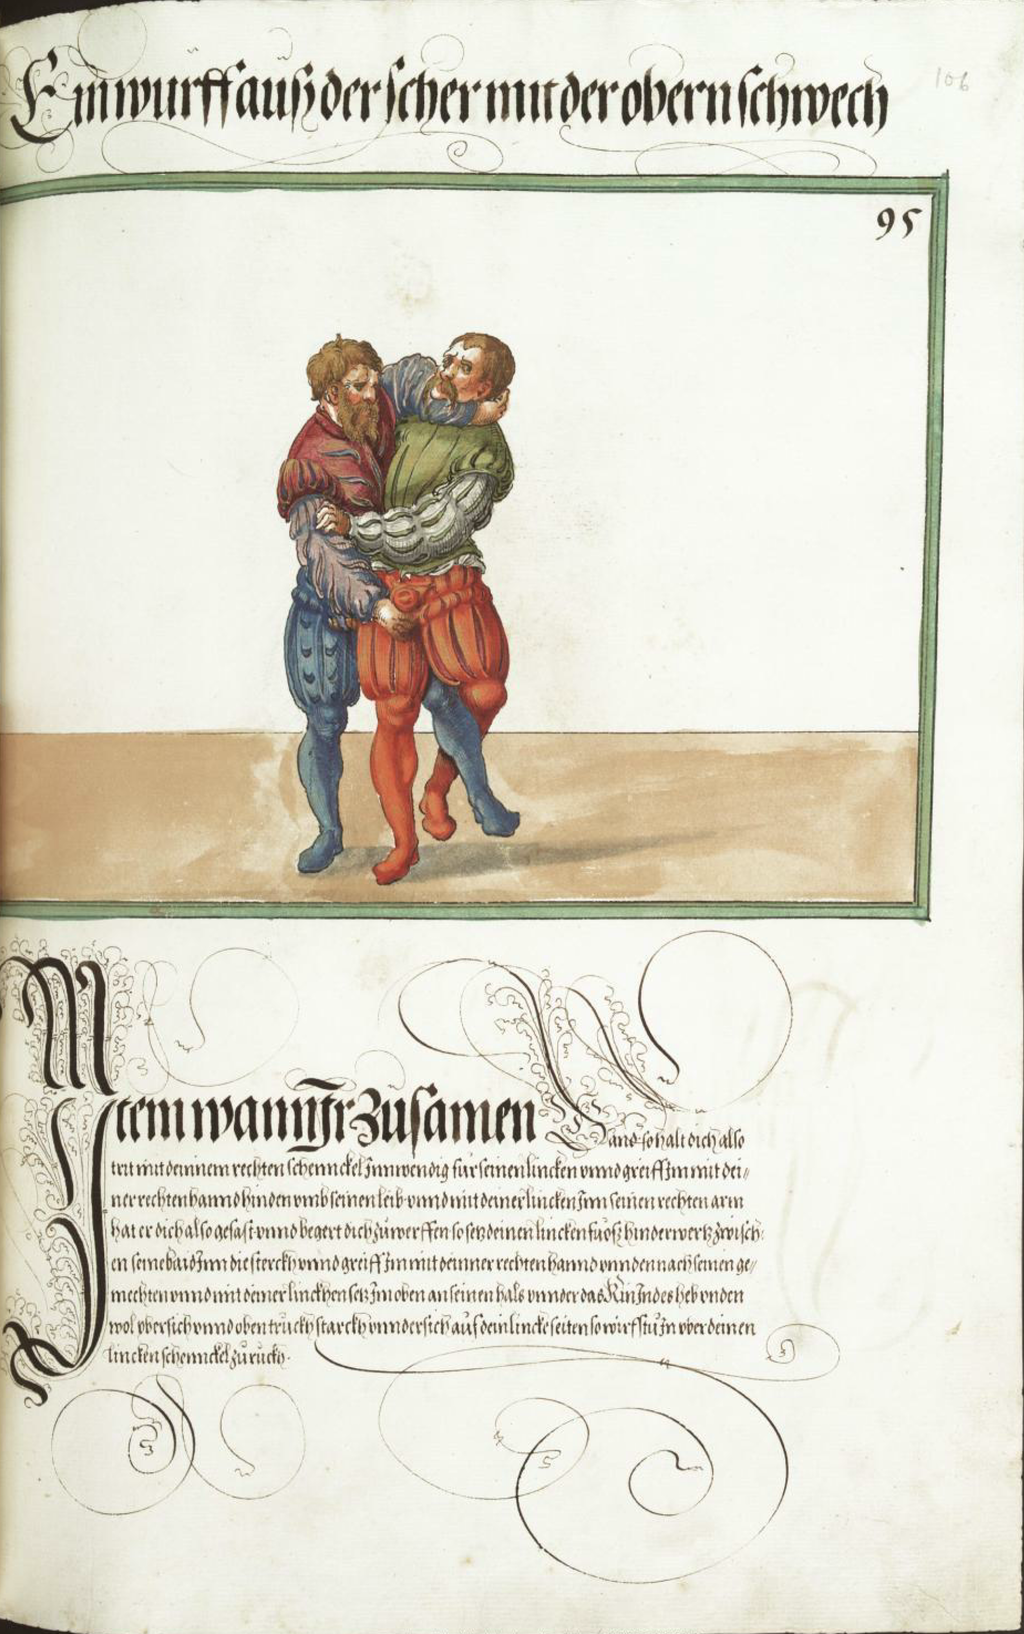 Ein wurff auß der scher mit der obern schwech
106
95
Item wann Ir zusamen
gand so halt dich also
trit mit deinnem rechten schennckel Innwendig für seinen lincken vnnd greiff Im mit dei„
ner rechten hannd hinden vmb seinen leib vnnd mit deiner lincken Inn seinen rechten arm
hat er dich also gefast vnnd begert dich zů werffen so setz deinen lincken fůoß hinderwertz zwisch„
en seine baid Inn die sterckh vnnd greiff Im mit deinner rechten hannd vnnden nach seinen ge„
mechten vnnd mit deiner linckhen setz Im oben an seinen hals vnnder das Kin Inndes heb vnden
wol vbersich vnnd oben truckh starckh vnndersich auf dein lincke seiten so wirfstu In vber deinen
lincken schennckel zů ruckh.